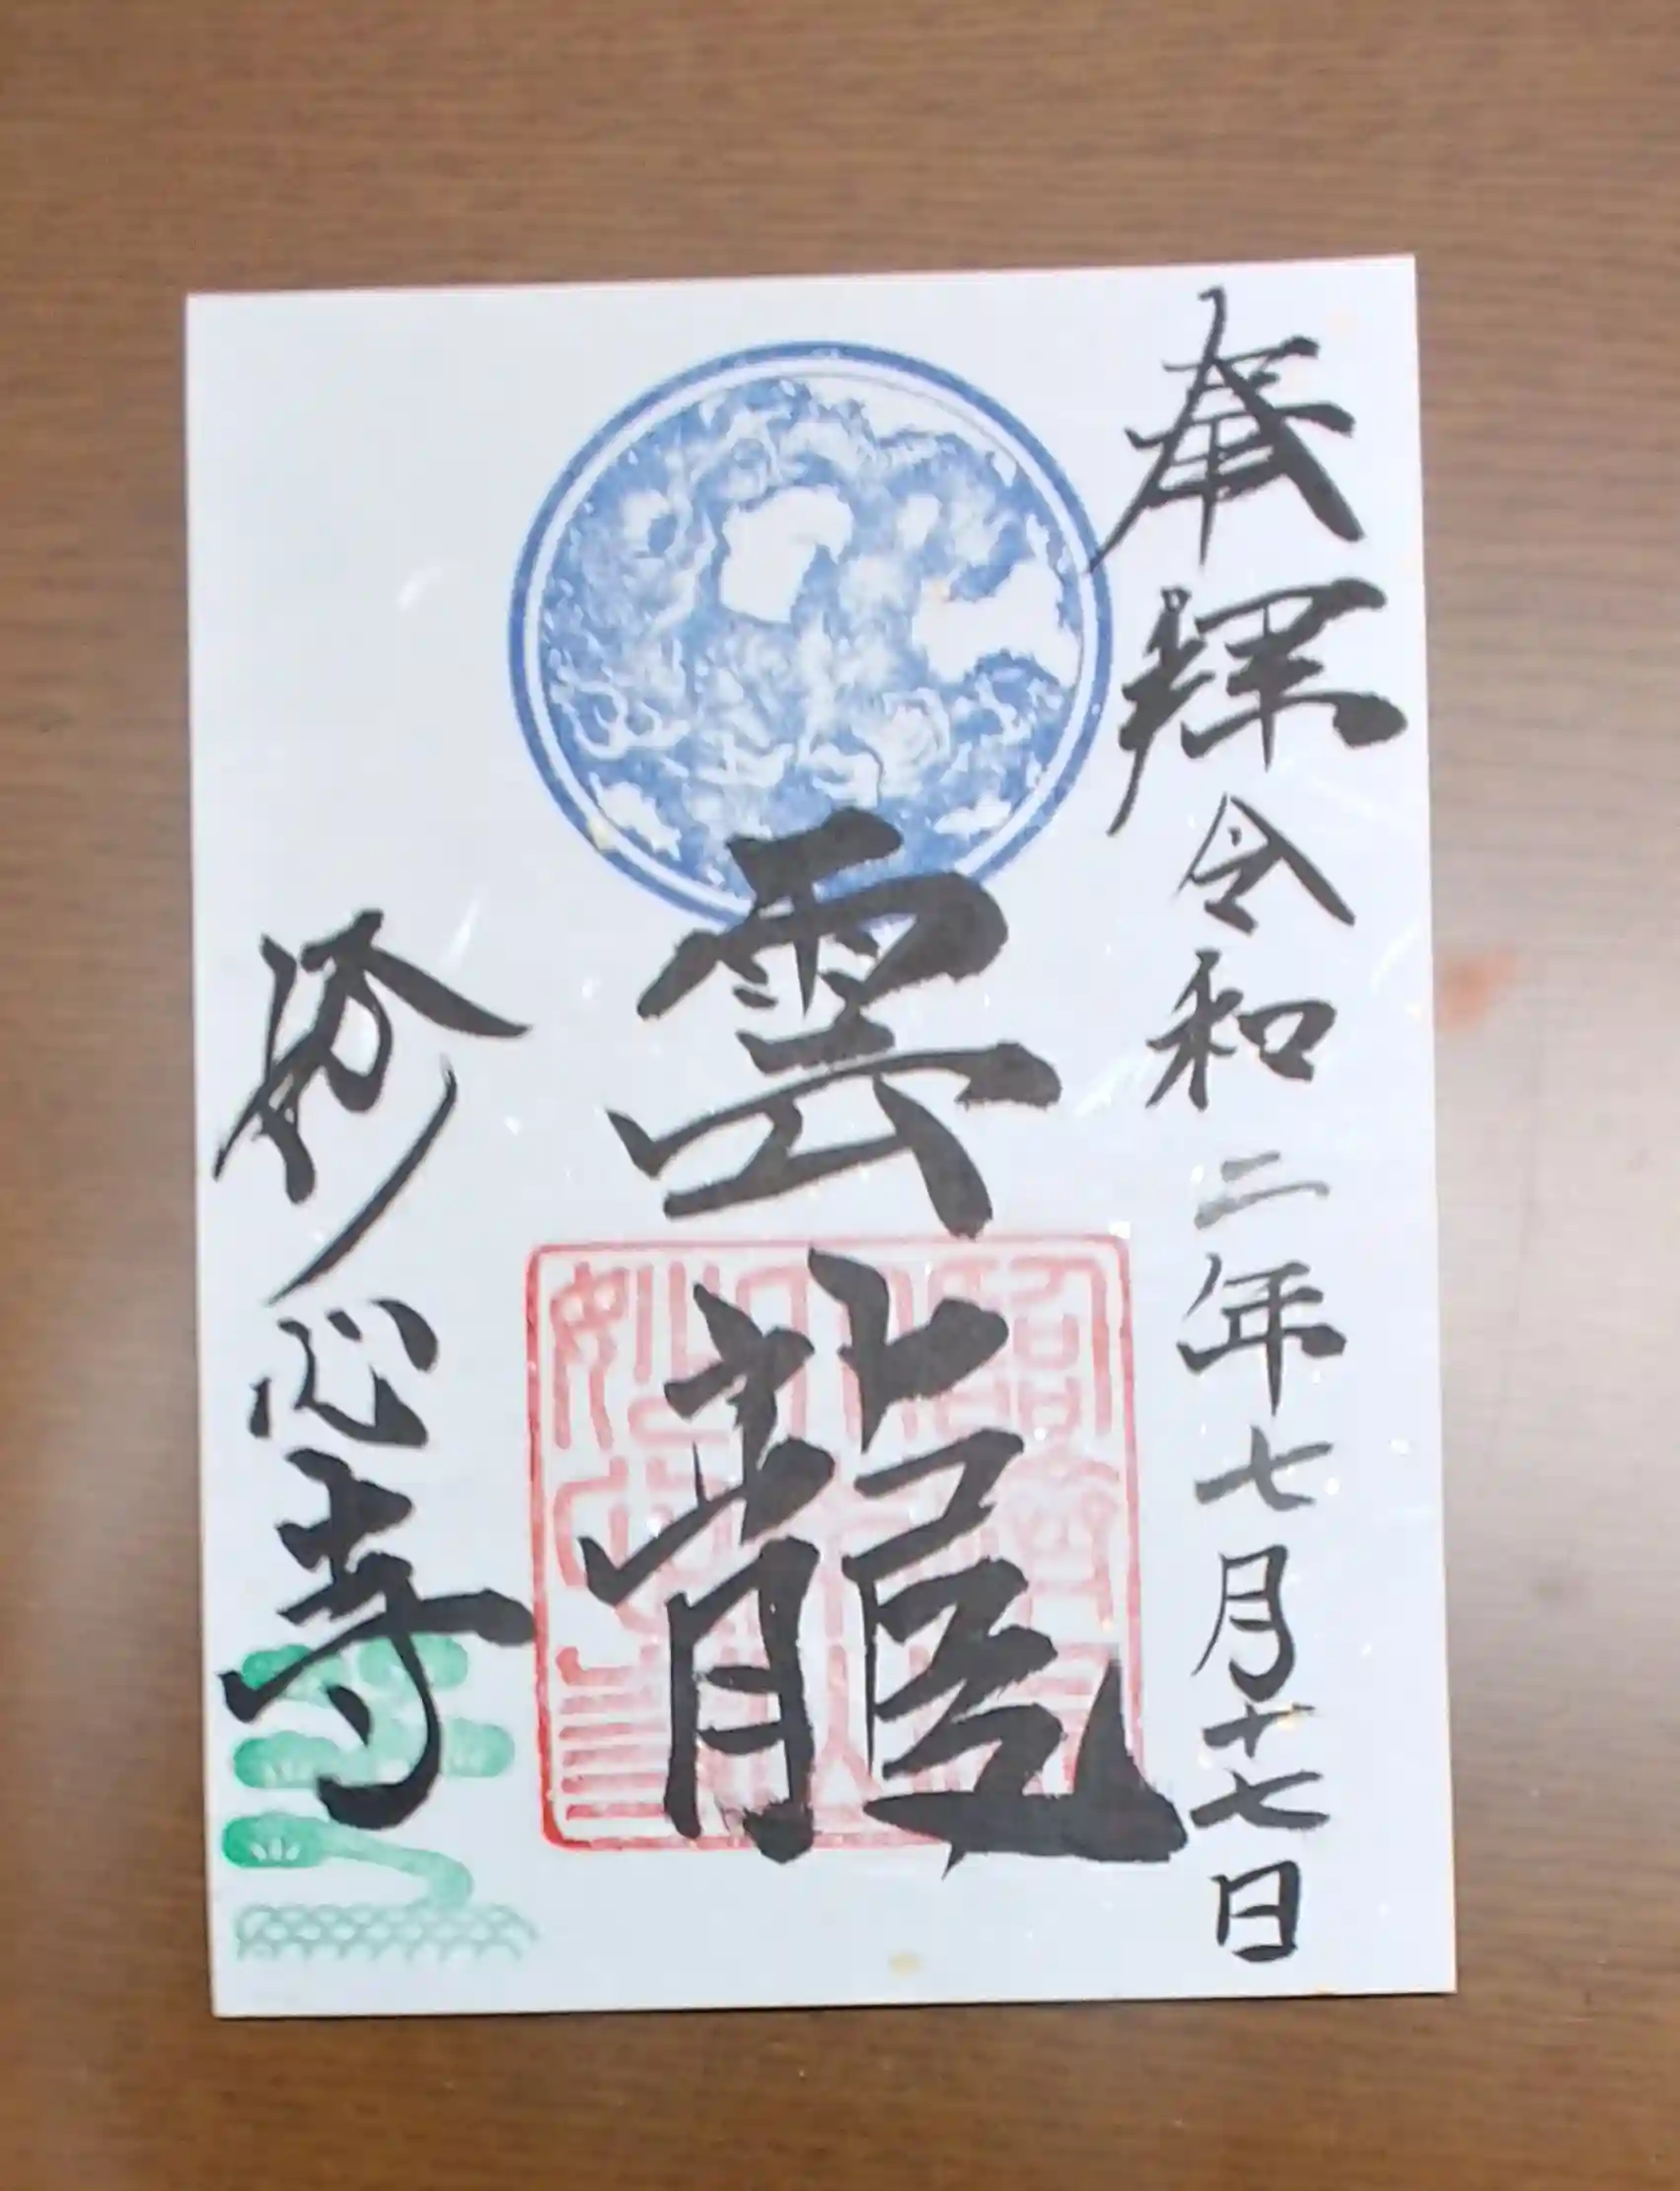 奉拝 令和二年七月十七日
雲龍
妙心寺